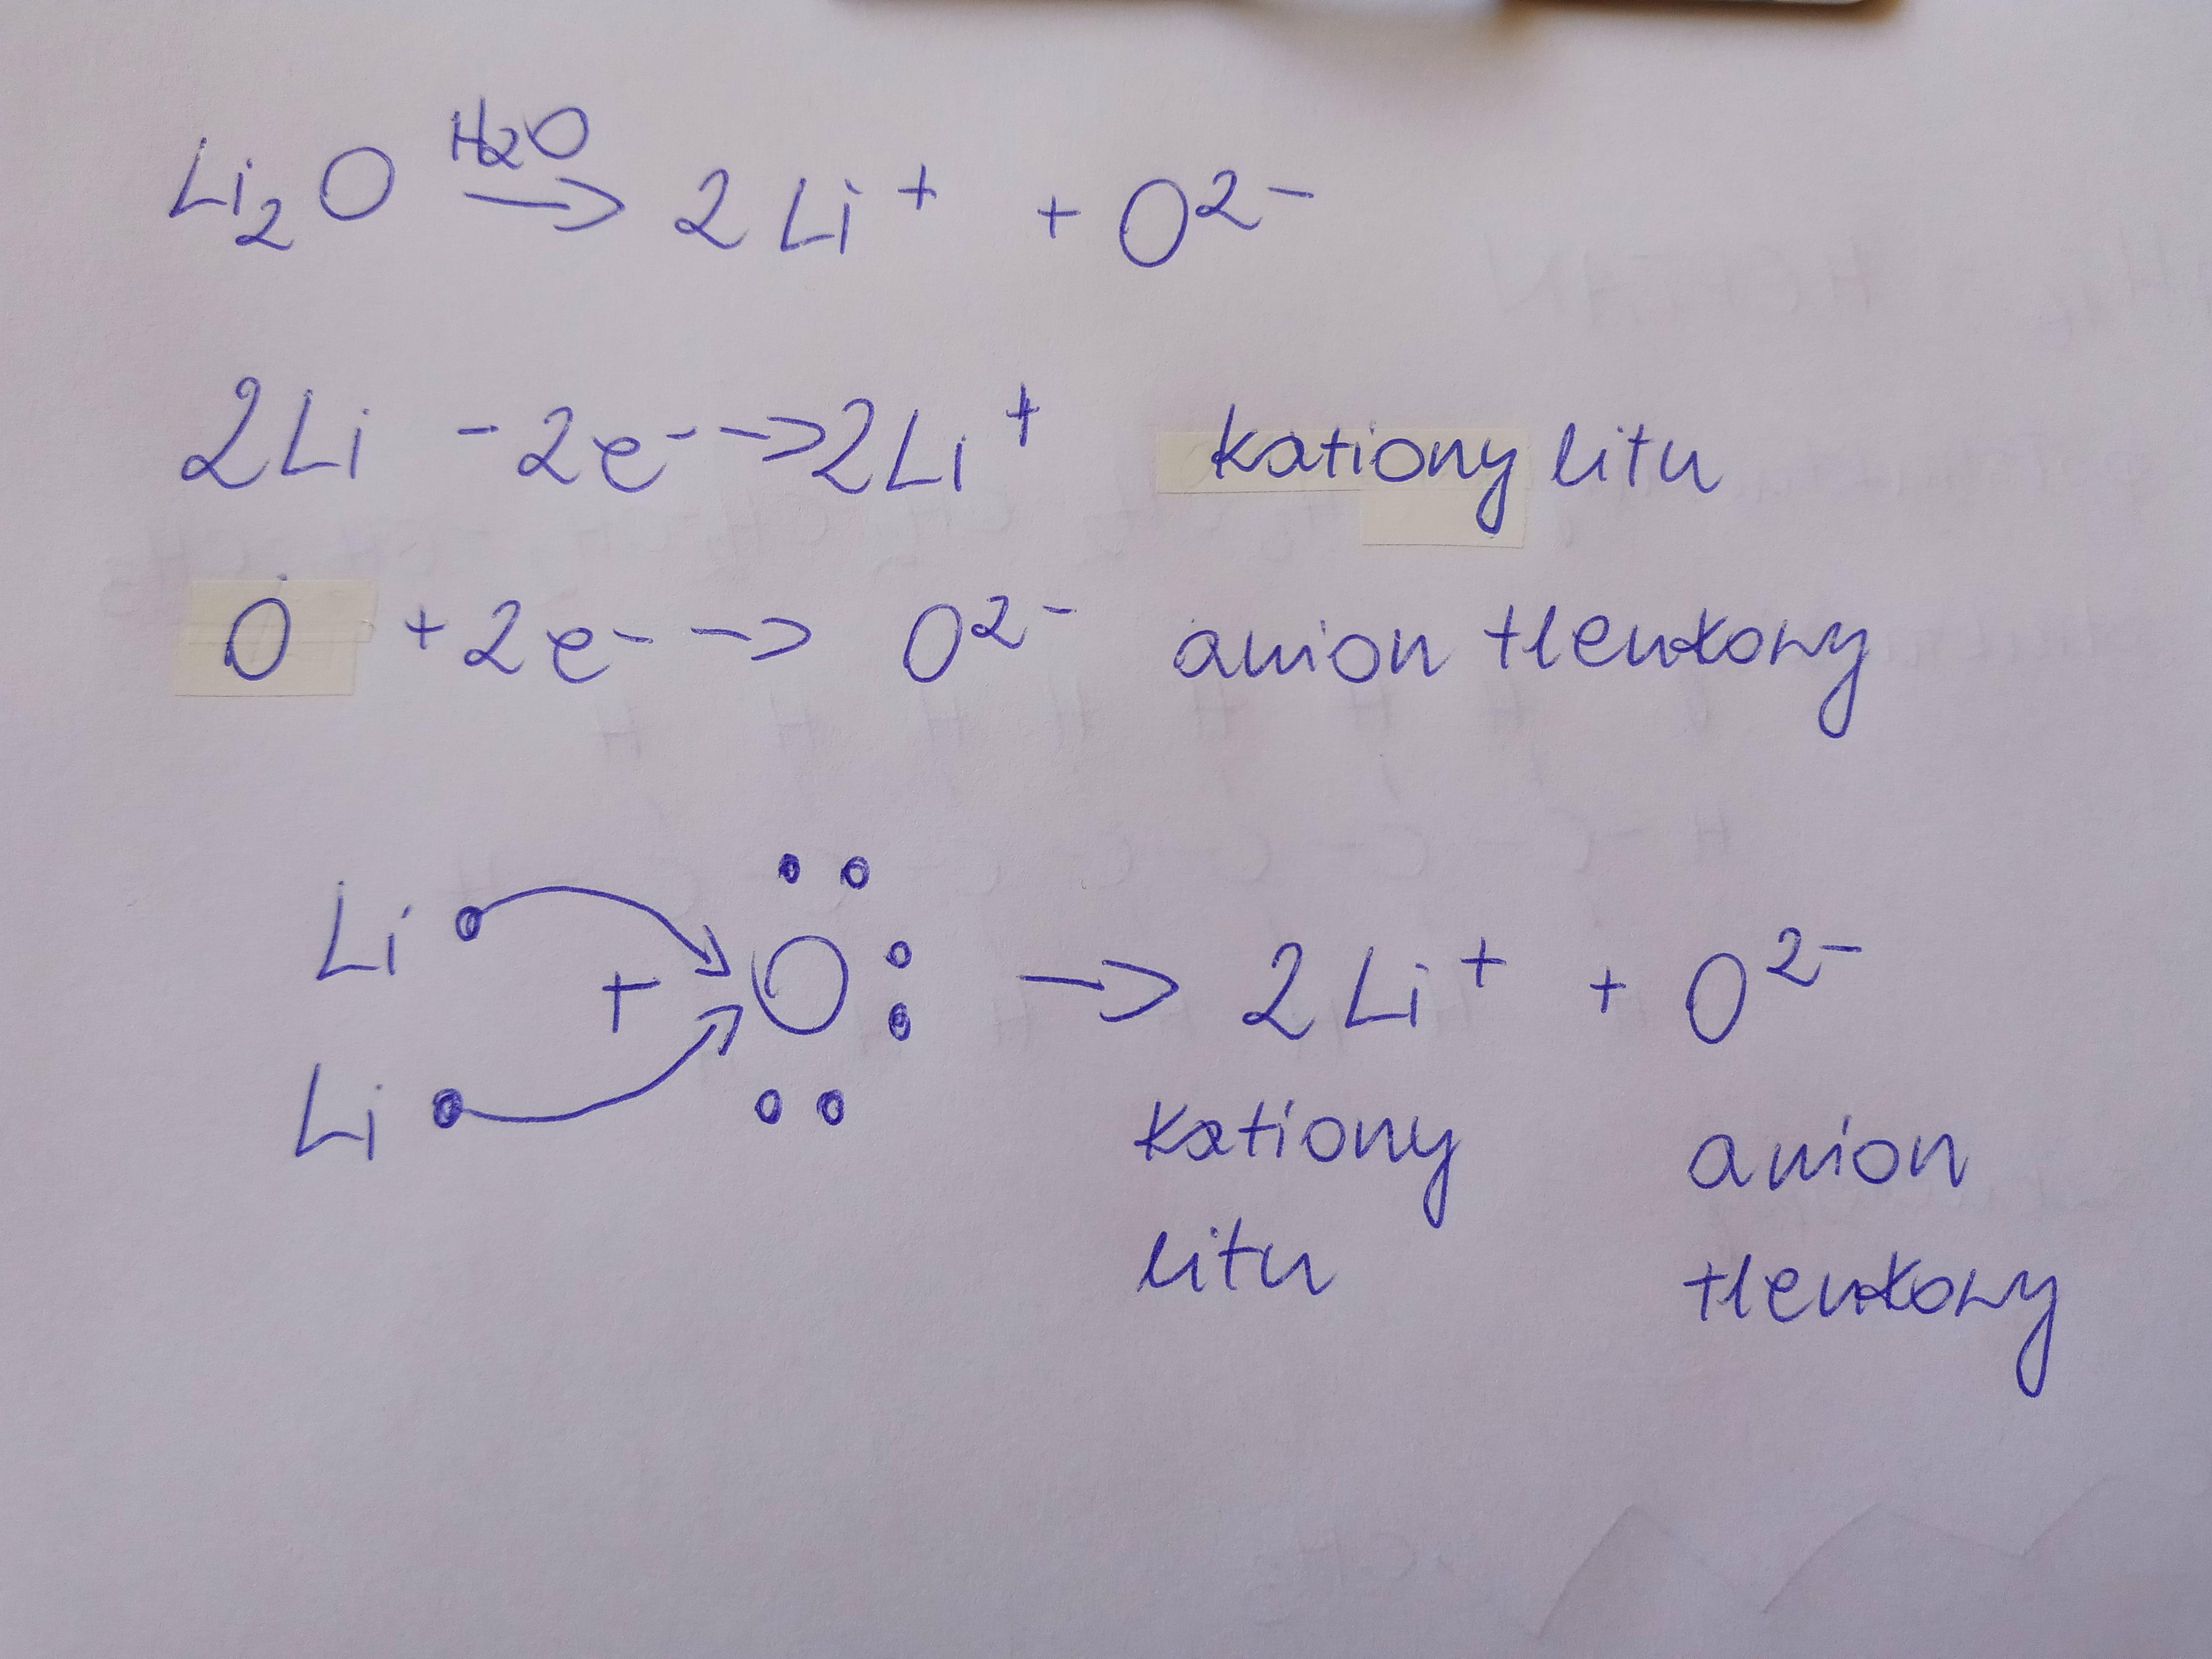 Li₂O H₂O → 2 Li⁺ + O²⁻
2Li - 2e⁻ → 2Li⁺ kationy litu
O + 2e⁻ → O²⁻ anion tlenkowy
Li
+ O → 2 Li⁺ + O²⁻
Li
kationy anion
litu tlenkowy